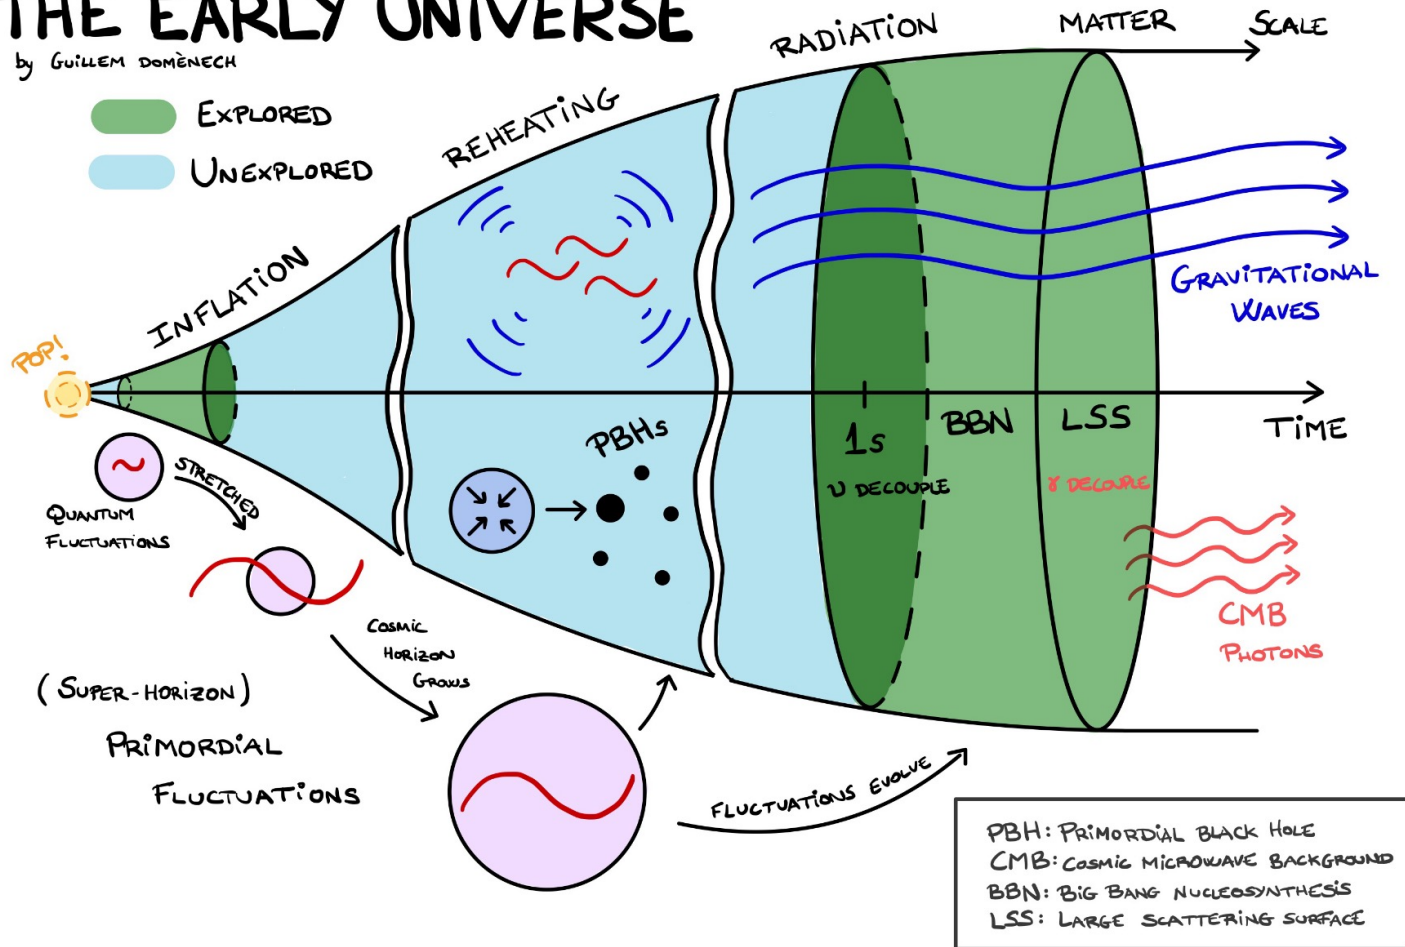 THE EARLY UNIVERSE
by GUILLEM DOMÈNECH
EXPLORED
UNEXPLORED
INFLATION
REHEATING
RADIATION
MATTER
SCALE
POP!
GRAVITATIONAL
WAVES
TIME
1s
BBN
LSS
ν DECOUPLE
γ DECOUPLE
PBHs
QUANTUM
FLUCTUATIONS
STRETCHED
COSMIC
HORIZON
GROWS
(SUPER-HORIZON)
PRIMORDIAL
FLUCTUATIONS
FLUCTUATIONS EVOLVE
CMB
PHOTONS
PBH: PRIMORDIAL BLACK HOLE
CMB: COSMIC MICROWAVE BACKGROUND
BBN: BIG BANG NUCLEOSYNTHESIS
LSS: LARGE SCATTERING SURFACE